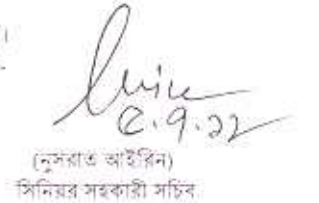 ৫.৭.২২
(নুসরাত আইরিন)
সিনিয়র সহকারী সচিব